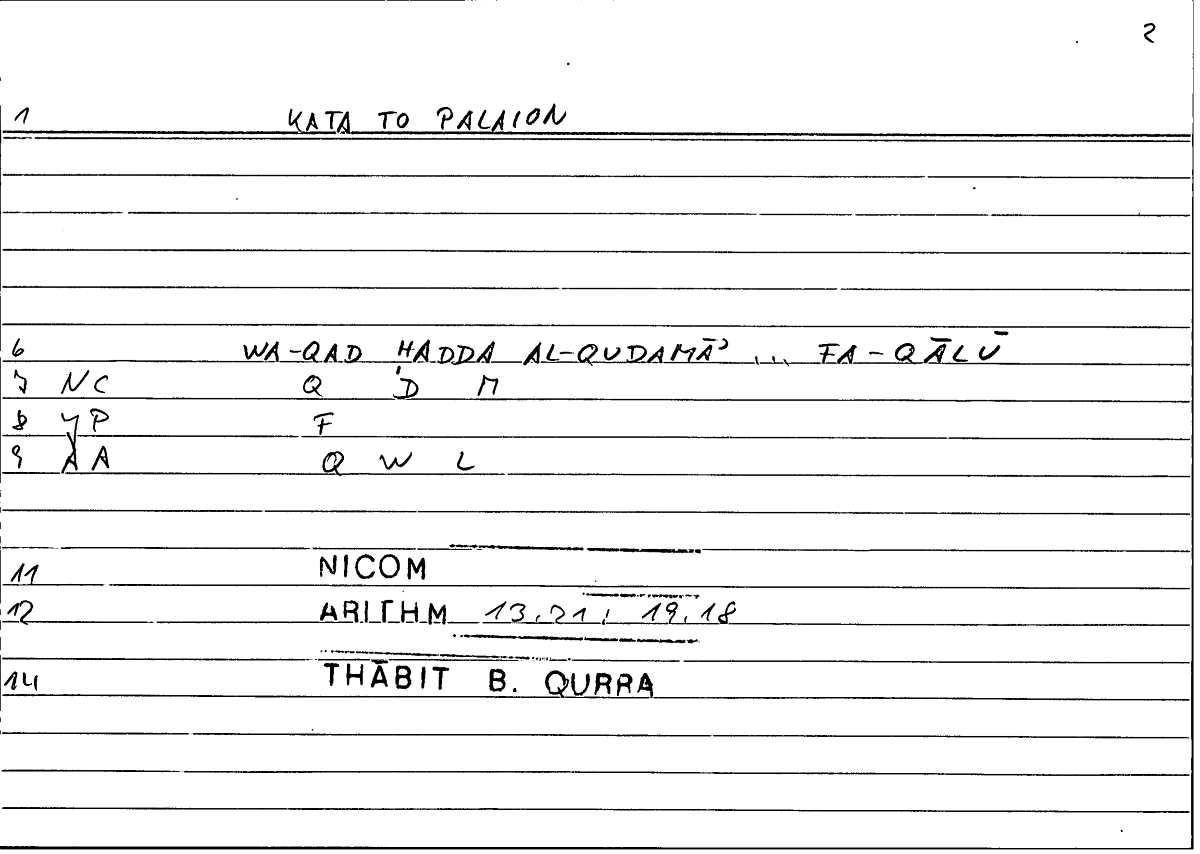 2
1 KATA TO PALAION
6 WA-QAD ḤADDA AL-QUDAMĀʾ ... FA-QĀLŪ
7 NC Q D M
8 YP F
9 AA Q W L
11 NICOM
12 ARITHM 13.21; 19.18
14 THĀBIT B. QURRA